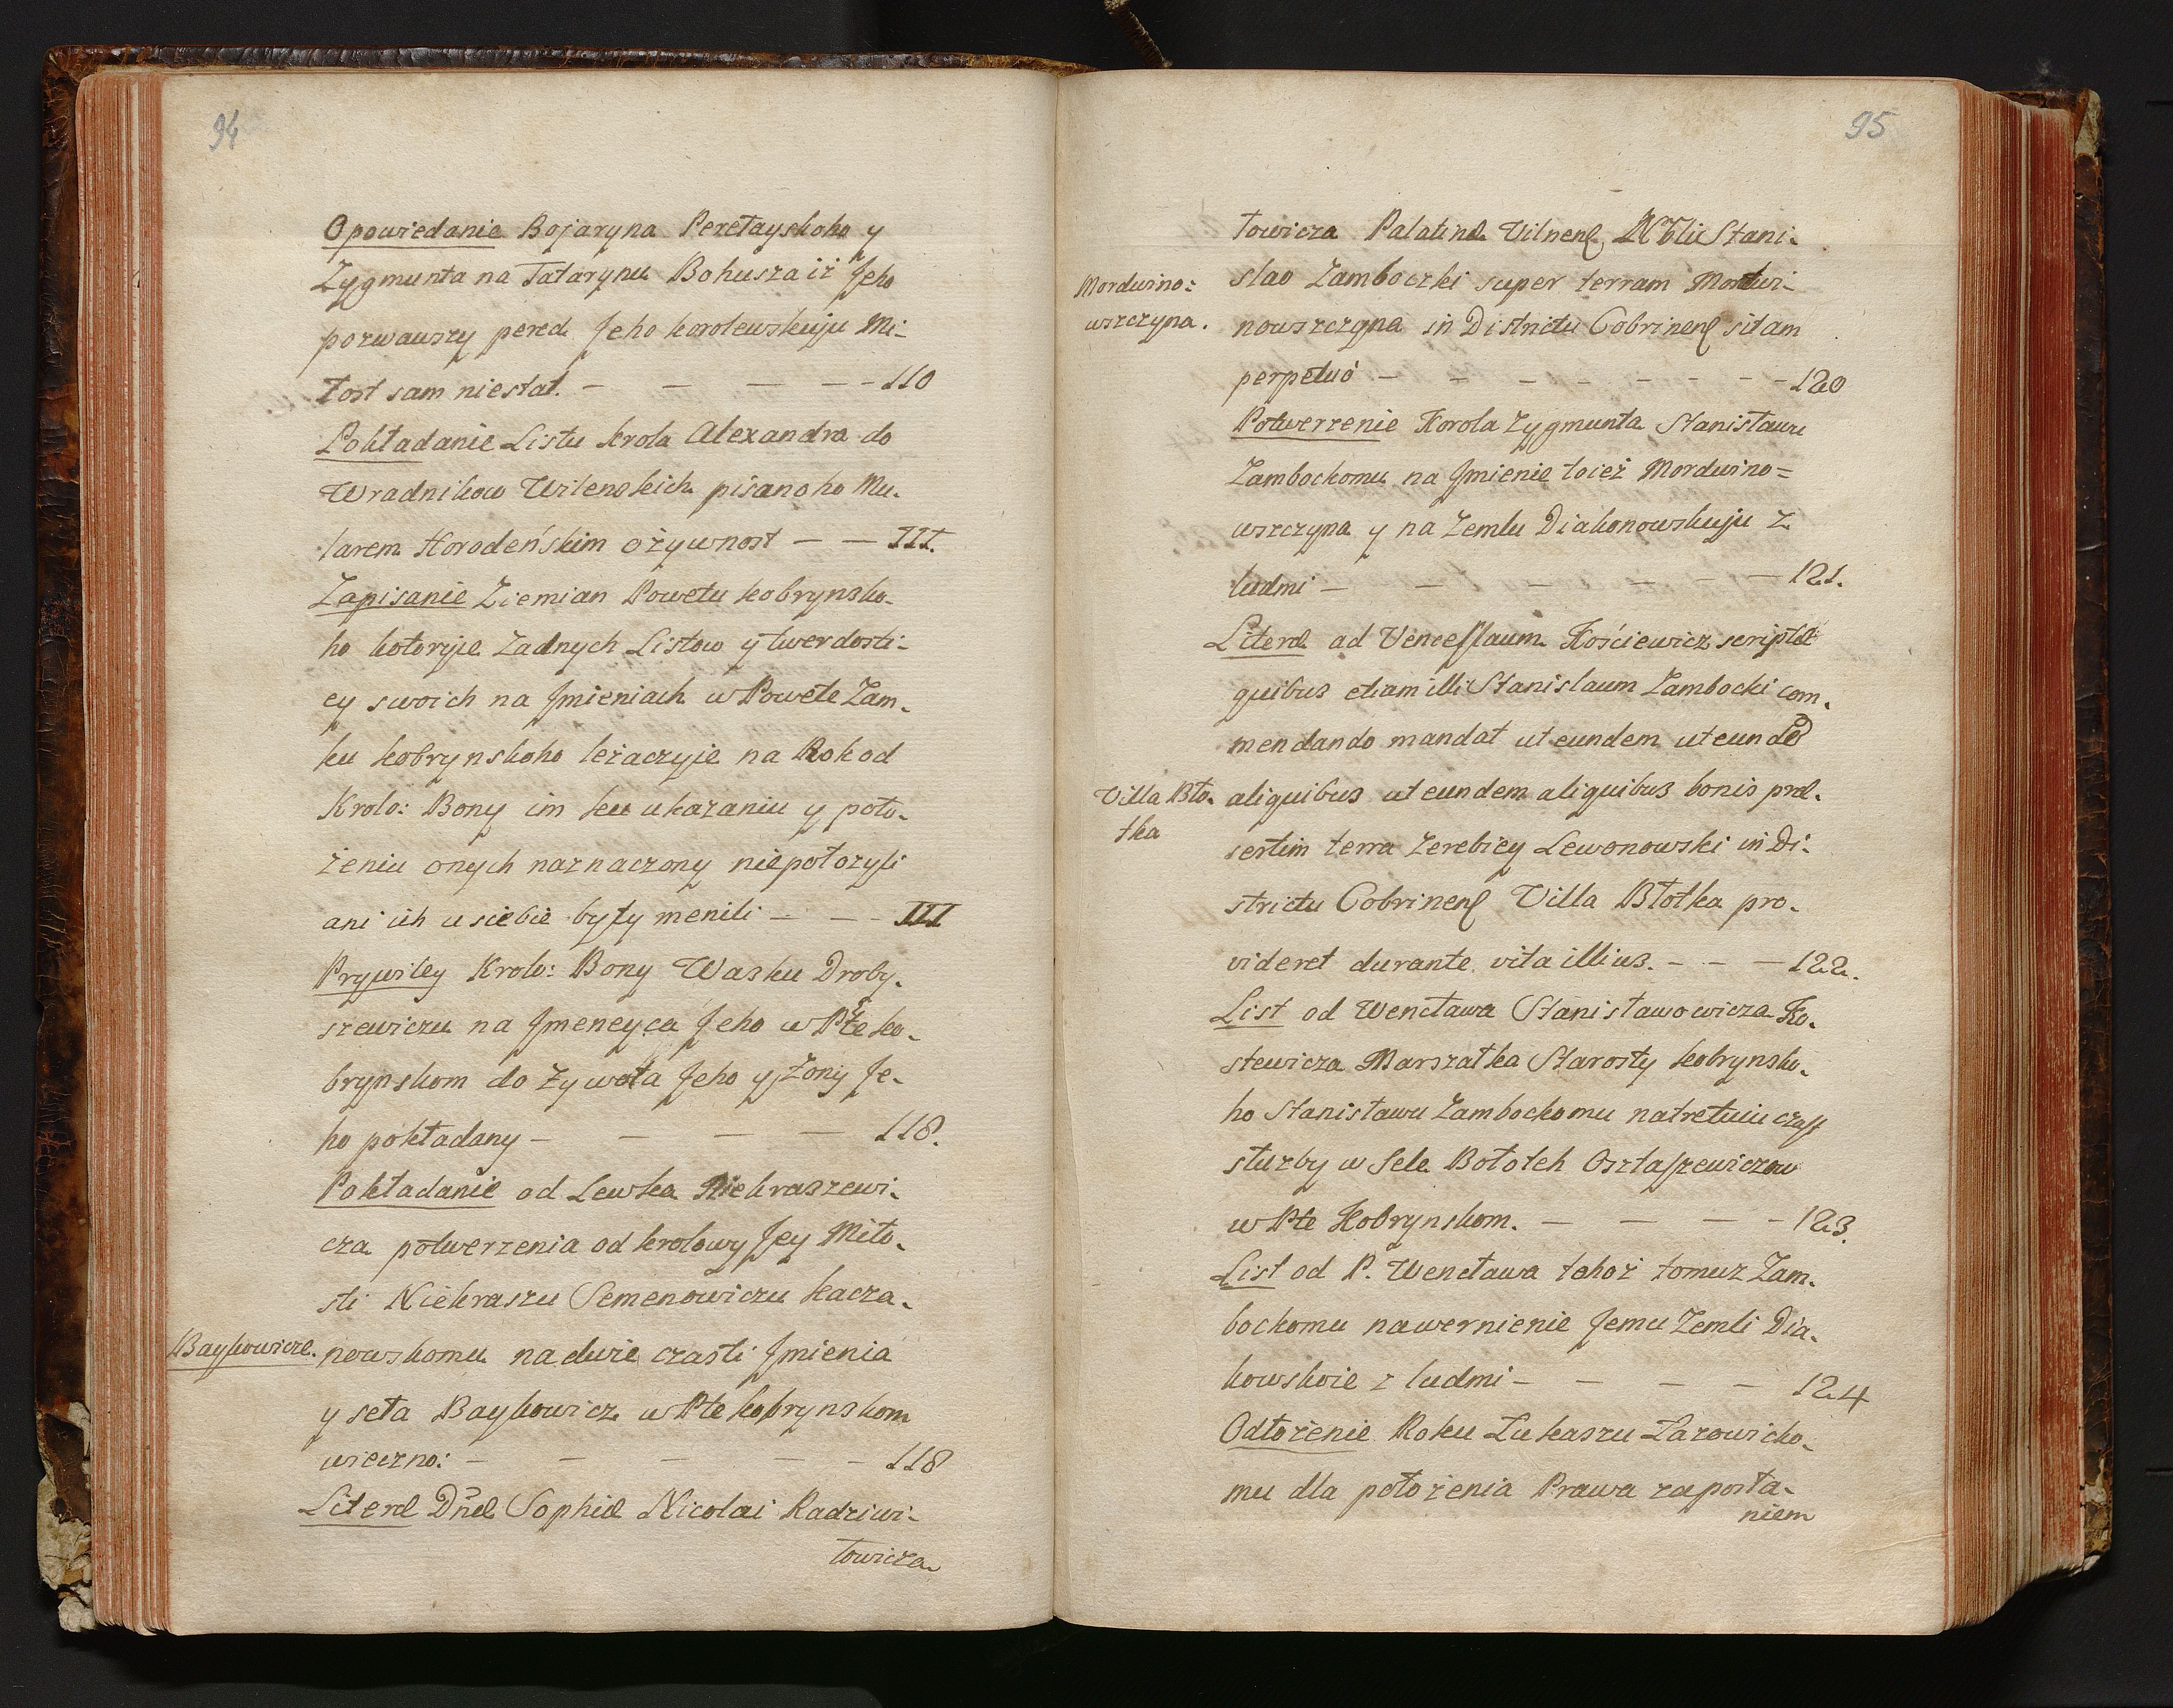 94
Opowiedanie Bojaryna Peretayskoho y
Zygmunta na Tatarynu Bohusza iż Jeho
pozwauszy pered Jeho korolewskuju Mi-
łost sam niestał. — — — — — 110
Pokładanie Listu krola Alexandra do
Wradnikow Wilenskich pisanoho Mu-
larem Horodeńskim ożywnost — — III.
Zapisanie Ziemian Powetu kobrynsko-
ho kotoryje Żadnych Listow y twerdosti-
ey swoich na Jmieniach w Powete Zam-
ku kobrynskoho leżaczyje na Rok od
Krolo: Bony im ku ukazaniu y poło-
żeniu onych naznaczony niepołożyli
ani ich u siebie były menili — — — III
Prywiley Krolo: Bony Wasku Droby-
szewiczu na Jmeneyca Jeho w Pte ko-
brynskom do Żywota Jeho y Żony Je-
ho pokładany — — — — 118.
Pokładanie od Lewka Niekraszewi-
cza potwerzenia od krolowy Jey Miło-
sti Niekraszu Semenowiczu kacza-
Baykowicze.
nowskomu na dwie czasti Jmienia
y seła Baykowicz w Pte kobrynskom
wieczno: — — — — — 118
Literæ Dnæ Sophiæ Nicolai Radziwi-
łowicza
95
łowicza Palatinæ Vilnens Nobli Stani-
Mordwino:
wszczyna.
slao Zamboczki super terram Mordwi-
nowszczyna in Districtu Cobrinens sitam
perpetuò — — — — — — — — 120
Potwerzenie Korola Zygmunta Stanisławu
Zambockomu na Jmienie toież Mordwino=
wszczyna y na Zemlu Diakonowskuju z
ludmi — — — — — — 121.
Literæ ad Venceslaum Kościewicz scriptæ
quibus etiam illi Stanislaum Zambocki com-
mendando mandat ut eundem ut eunde
Villa Bło-
tka
aliquibus ut eundem aliquibus bonis præ-
sertim terra Zerebiey Lewonowski in Di-
strictu Cobrinens Villa Błotka pro-
videret durante vita illius. — — — 122.
List od Wencława Stanisławowicza Ko-
stewicza Marszałka Starosty kobrynsko-
ho Stanisławu Zambockomu na tretuiu czast
służby w Sele Bołotch Osztaszewiczow
w Pte Kobrynskom. — — — — 123.
List od P. Wencława tehoż tomuż Zam-
bockomu nawernienie Jemu Zemli Dia-
kowskoie z ludmi — — — — 124
Odłożenie Roku Łukaszu Łazowicko-
mu dla położenia Prawa zaposta-
niem